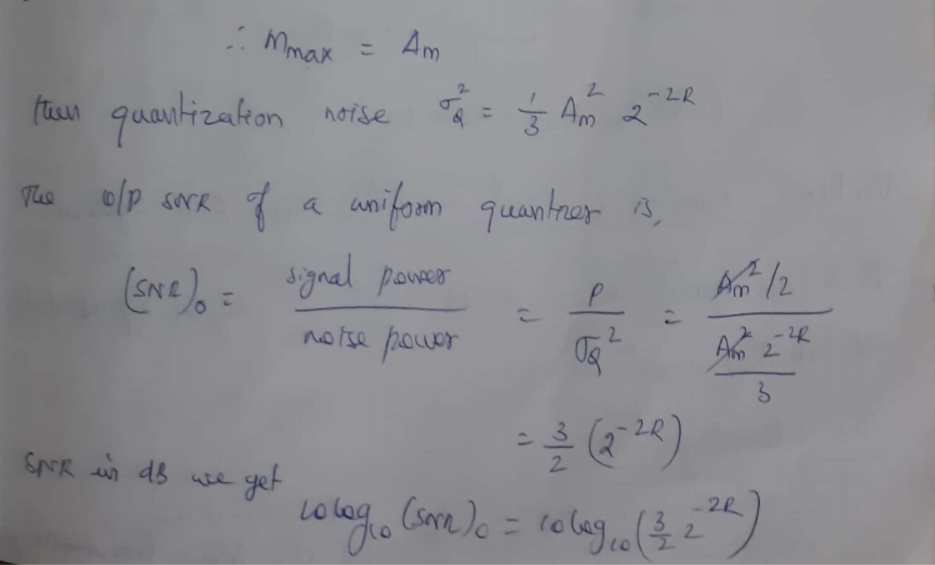 ∴ Mmax = Am
then quantization noise σ_Q^2 = 1/3 Am^2 2^-2R
The o/p SNR of a uniform quantizer is,
(SNR)₀ = signal power / noise power = P / σ_Q^2 = (Am^2/2) / (Am^2 2^-2R / 3)
= 3/2 (2^-2R)
SNR in dB we get
10log₁₀ (SNR)₀ = 10log₁₀ (3/2 2^-2R)